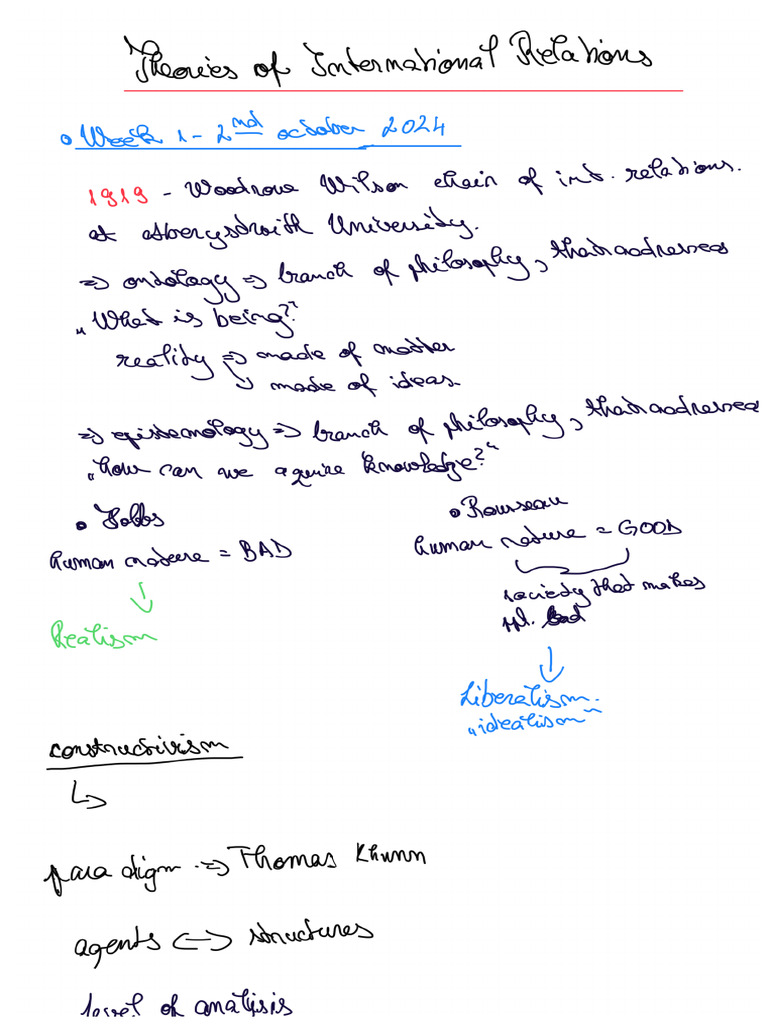 Theories of International Relations
• Week 1 - 2nd october 2024
1919 - Woodrow Wilson chair of int. relations.
at Aberystwith University.
=> ontology => branch of philosophy, that addresses
„What is being?"
reality => made of matter
↘ made of ideas.
=> epistemology => branch of philosophy, that addresses
„how can we aquire knowledge?"
• Hobbs
human nature = BAD
↓
Realism
• Rousseau
human nature = GOOD
society that makes
ppl. bad
↓
Liberalism.
„idealism"
constructivism
↳
paradigm => Thomas Khunn
agents <-> structures
level of analisis